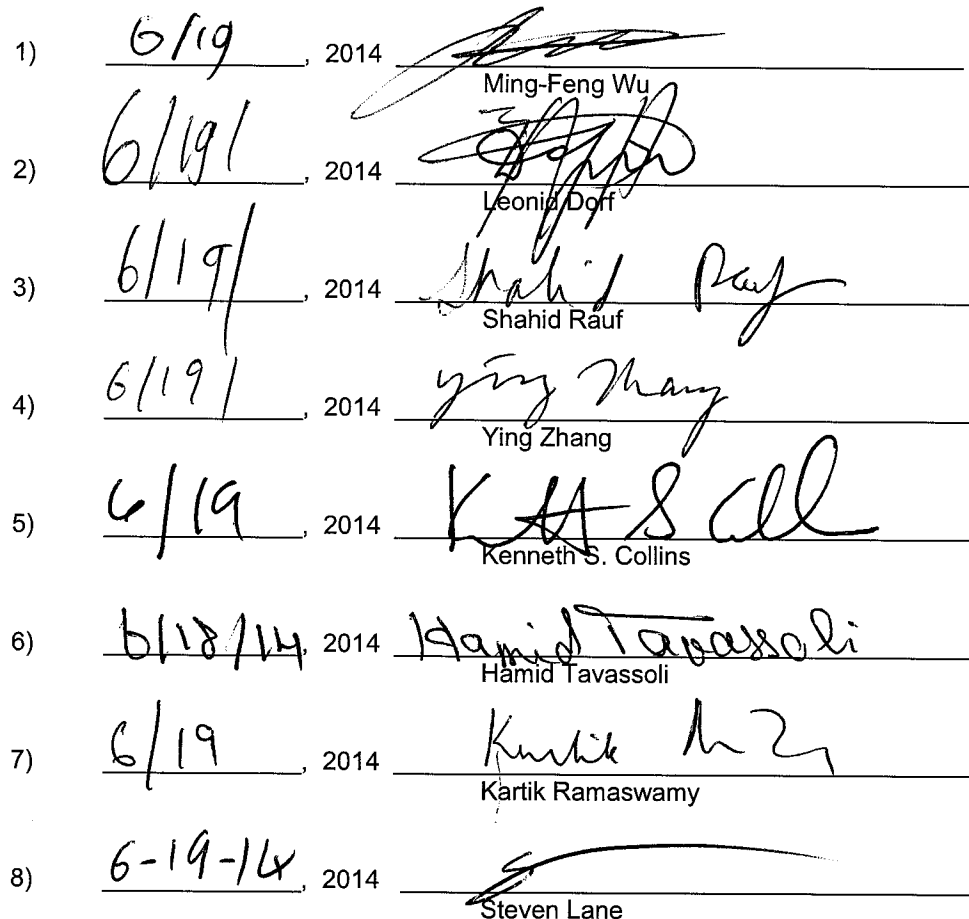 1) 6/19, 2014
Ming-Feng Wu
2) 6/19/, 2014
Leonid Dorf
3) 6/19/, 2014 Shahid Rauf
Shahid Rauf
4) 6/19/, 2014 Ying Zhang
Ying Zhang
5) 6/19, 2014
Kenneth S. Collins
6) 6/18/14, 2014 Hamid Tavassoli
Hamid Tavassoli
7) 6/19, 2014 Kartik
Kartik Ramaswamy
8) 6-19-14, 2014
Steven Lane